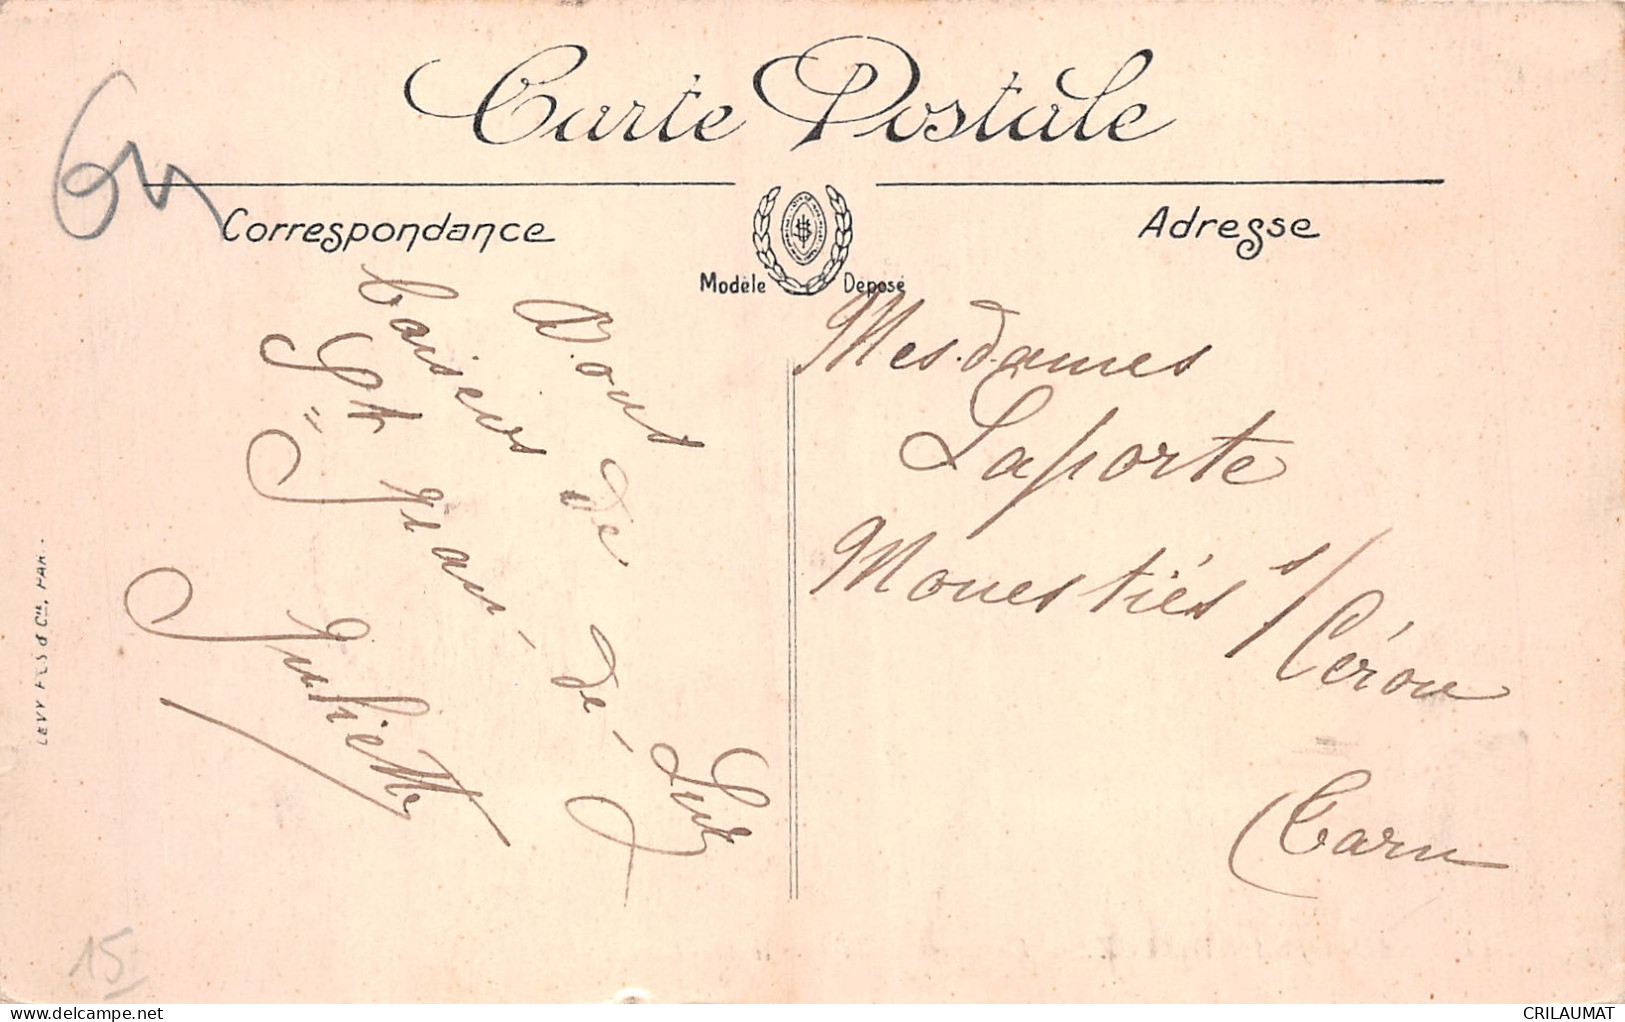 Carte Postale
64
Correspondance
Adresse
Modèle Déposé
Bons
baisers de
St Jean-de-Luz
Juliette
Mesdames
Laporte
Monestiés s/ Cérou
Tarn
LEVY FILS & Cie, PARIS
15
delcampe.net
CRILAUMAT